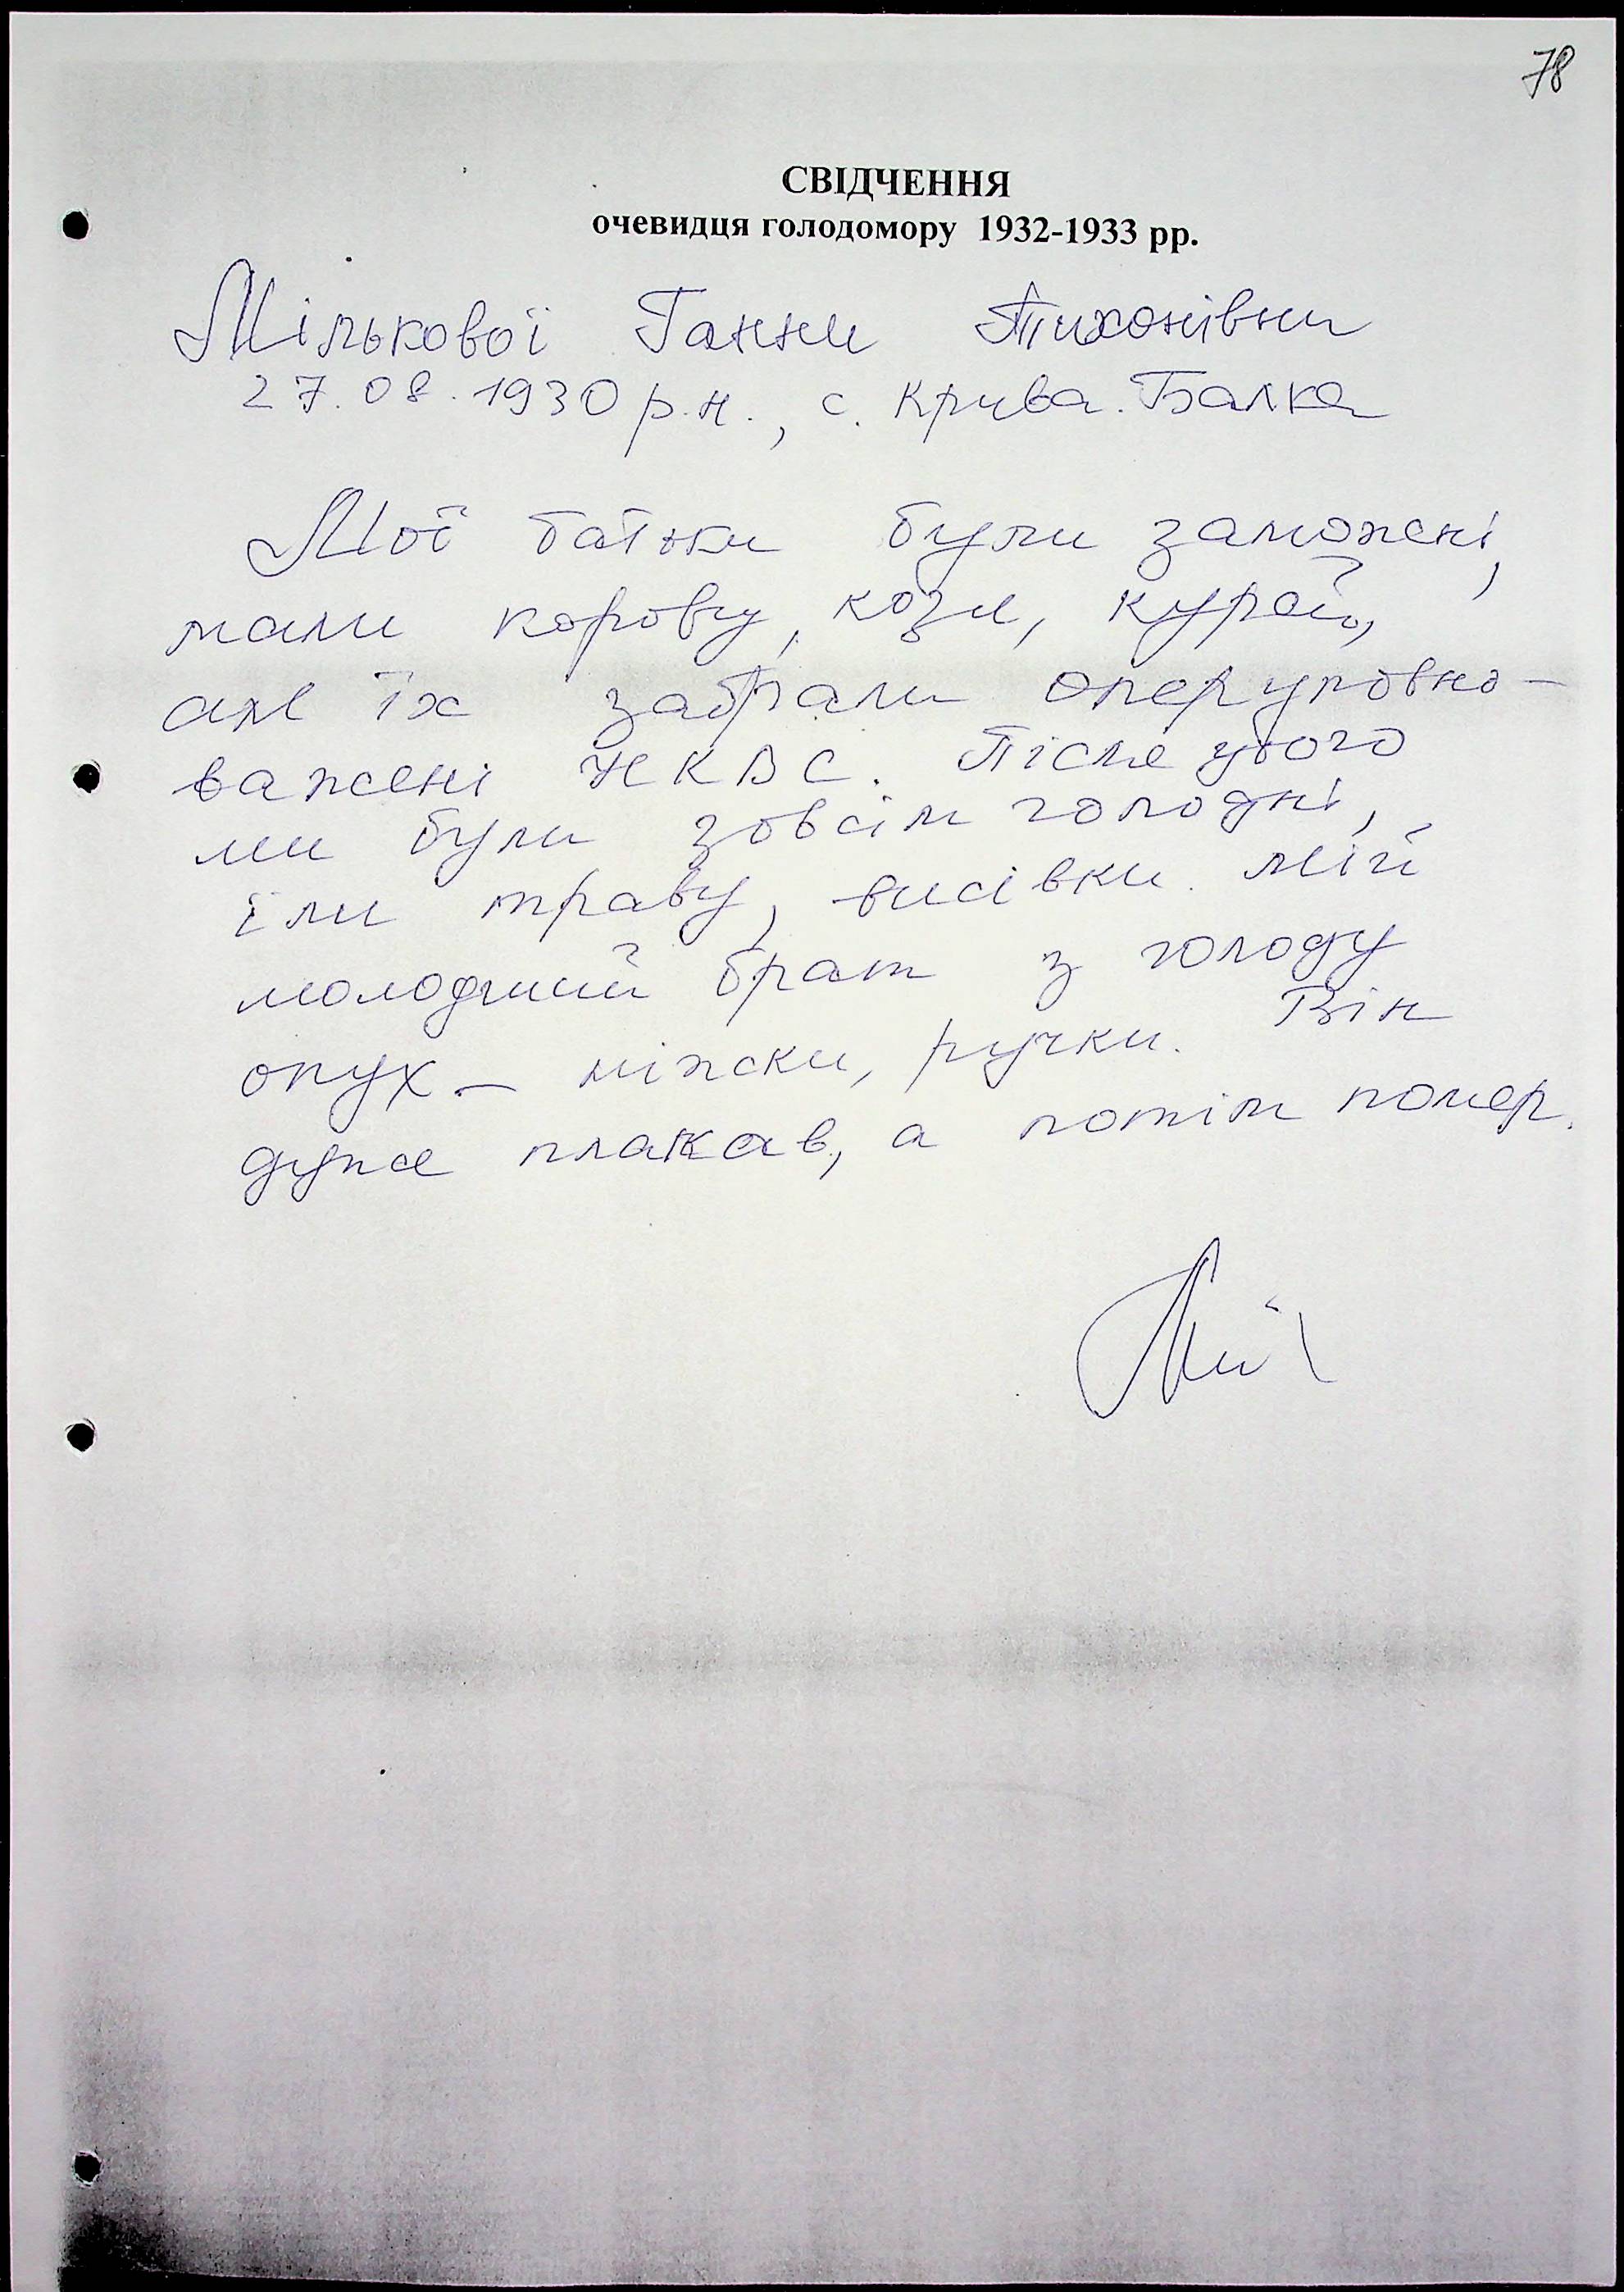 78
СВІДЧЕННЯ
очевидця голодомору 1932-1933 рр.
Мількової Ганни Тихонівни
27.08.1930 р.н., с. Крива Балка
Мої батьки були заможні,
мали корову, кози, курей,
але їх забрали оперуповно-
важені НКВС. Після цього
ми були зовсім голодні,
їли траву, висівки. Мій
молодший брат з голоду
опух – ніжки, ручки. Він
дуже плакав, а потім помер.